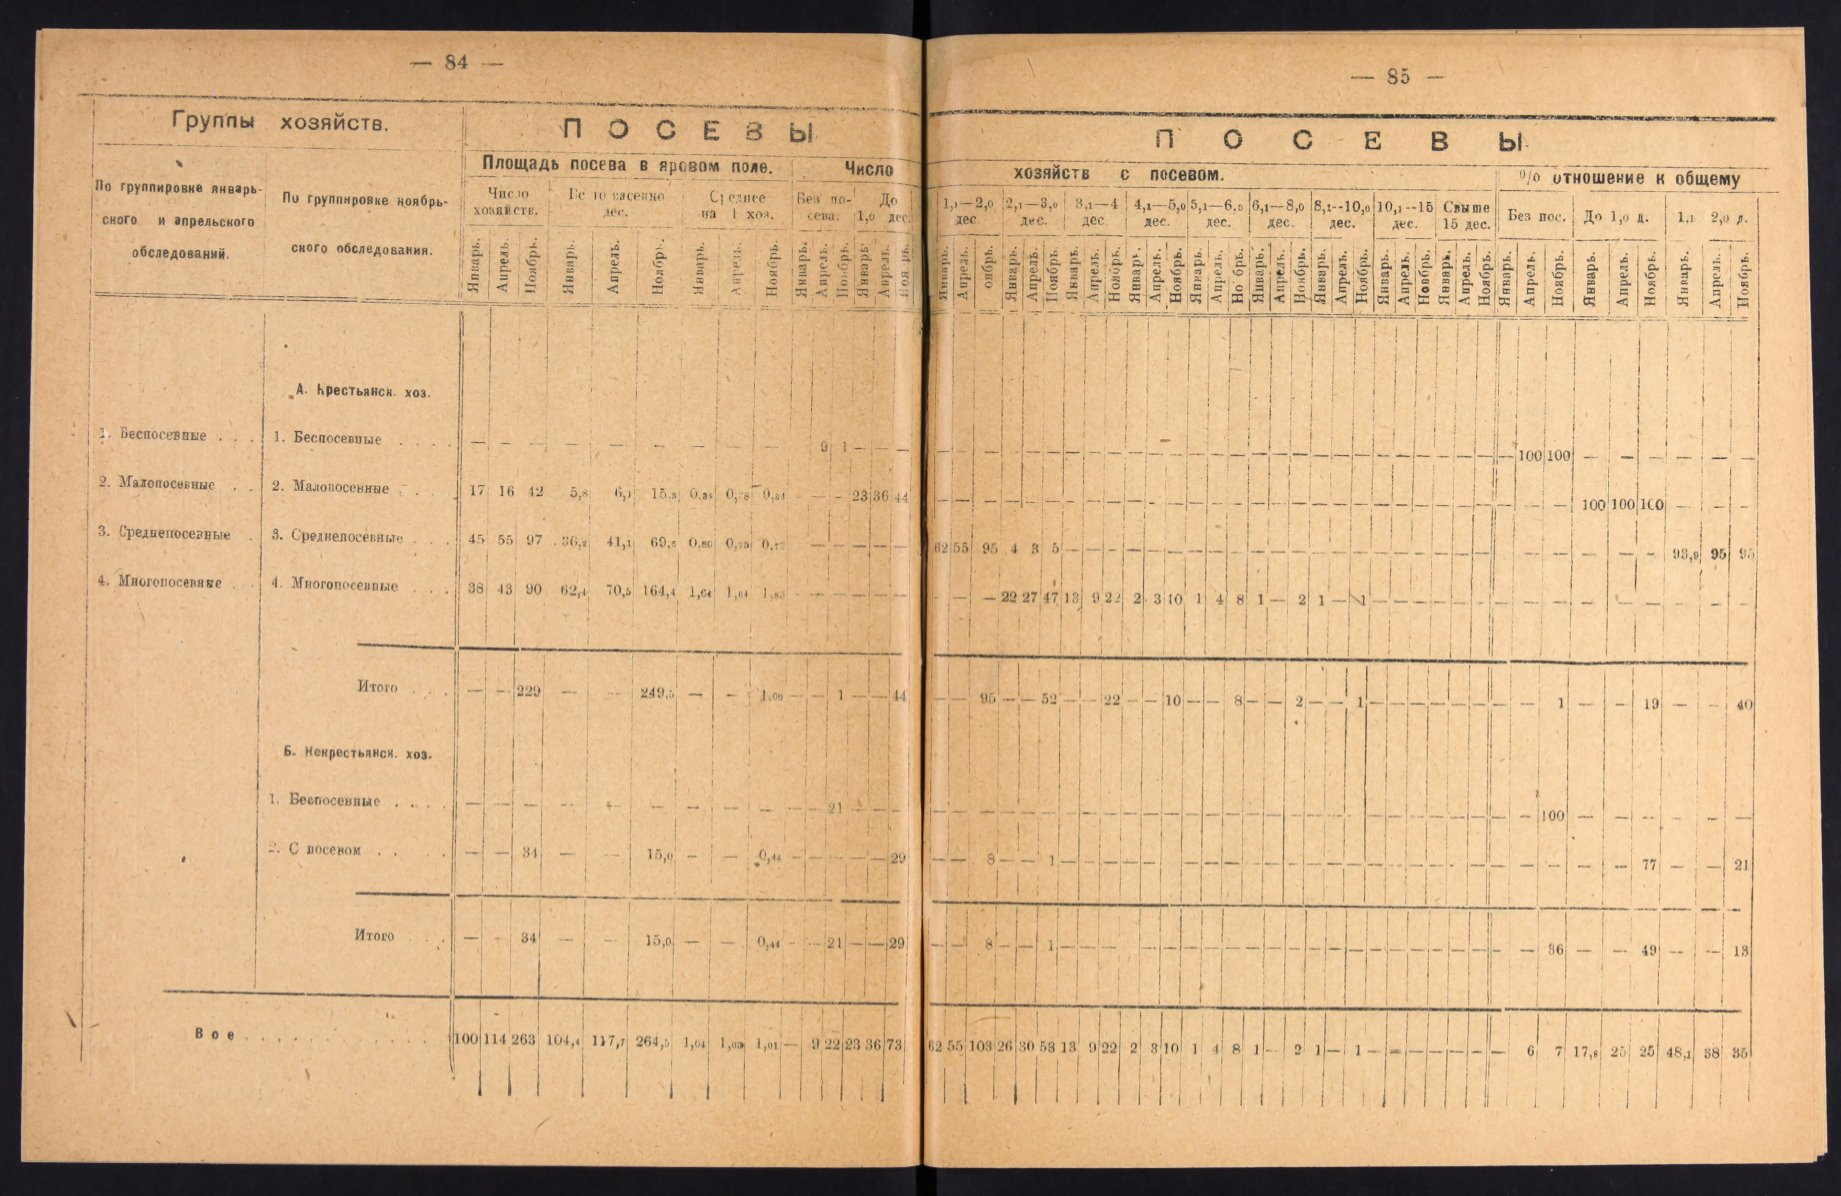 — 84 —
Группы хозяйств.
ПОСЕВЫ
Площадь посева в яровом поле.
Число
По группировке январь-
ского и апрельского
обследований.
По группировке ноябрь-
ского обследования.
Число
хозяйств.
дес.
Среднее
на 1 хоз.
Без по-
сева.
До
1,0 дес.
Январь. Апрель. Ноябрь. Январь. Апрель. Ноябрь. Январь. Апрель. Ноябрь. Январь. Апрель. Ноябрь. Январь. Апрель. Ноябрь.
А. Крестьянск. хоз.
1. Беспосевные . . . 1. Беспосевные . . . . — — — — — — — — — 9 1 — — —
2. Малопосевные . . 2. Малопосевные . . . 17 16 42 5,8 15,3 0,34 0,34 — — — 23 36 44
3. Среднепосевные . 3. Среднепосевные . . . 45 55 97 36,2 41,1 0,80 0,75 0,72 — — — — —
4. Многопосевные . . 4. Многопосевные . . . 38 43 90 62,4 70,5 164,4 1,64 1,64 1,83 — — — — — —
Итого . . . — — 229 — — 249,5 — — 1,09 — — 1 — — 44
Б. Некрестьянск. хоз.
1. Беспосевные . . . . — — — — — — — — — — — 21 — — —
2. С посевом . . . — — 34 — — 15,0 — — 0,44 — — — — — 29
Итого . . . — — 34 — — 15,0 — — 0,44 — — 21 — — 29
Все . . . . . . . . . . . 100 114 263 104,4 117,7 264,5 1,04 1,03 1,01 — 9 22 23 36 73
— 85 —
ПОСЕВЫ
хозяйств с посевом.
% отношение к общему
1,1—2,0 дес.
2,1—3,0 дес.
3,1—4 дес.
4,1—5,0 дес.
5,1—6,0 дес.
6,1—8,0 дес.
8,1—10,0 дес.
10,1—15 дес.
Свыше 15 дес.
Без пос.
До 1,0 д.
1,1 2,0 д.
Январь. Апрель. Ноябрь. Январь. Апрель. Ноябрь. Январь. Апрель. Ноябрь. Январь. Апрель. Ноябрь. Январь. Апрель. Ноябрь. Январь. Апрель. Ноябрь. Январь. Апрель. Ноябрь. Январь. Апрель. Ноябрь. Январь. Апрель. Ноябрь. Январь. Апрель. Ноябрь. Январь. Апрель. Ноябрь. Январь. Апрель. Ноябрь.
— — — — — — — — — — — — — — — — — — — — — — — — — — — — 100 100 — — — — — —
— — — — — — — — — — — — — — — — — — — — — — — — — — — — — — 100 100 100 — — —
62 55 95 4 3 5 — — — — — — — — — — — — — — — — — — — — — — — — — — — 93,9 95 95
— — — 22 27 47 13 9 22 2 3 10 1 4 8 1 — 2 1 — 1 — — — — — — — — — — — — — — —
— — 95 — — 52 — — 22 — — 10 — — 8 — — 2 — — 1 — — — — — — — — 1 — — 19 — — 40
— — — — — — — — — — — — — — — — — — — — — — — — — — — — — 100 — — — — — —
— — 8 — — 1 — — — — — — — — — — — — — — — — — — — — — — — — — — 77 — — 21
— — 8 — — 1 — — — — — — — — — — — — — — — — — — — — — — — 36 — — 49 — — 13
62 55 103 26 30 53 13 9 22 2 3 10 1 4 8 1 — 2 1 — 1 — — — — — — — 6 7 17,8 25 25 48,1 38 35